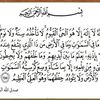 بسم الله الرحمن الرحيم
الله لا إله إلا هو الحي القيوم لا تأخذه سنة ولا نوم
له ما في السموات وما في الأرض من ذا الذي يشفع عنده
إلا بإذنه يعلم ما بين أيديهم وما خلفهم ولا يحيطون
بشيء من علمه إلا بما شاء وسع كرسيه السموات
والأرض ولا يؤده حفظهما وهو العلي العظيم
صدق الله